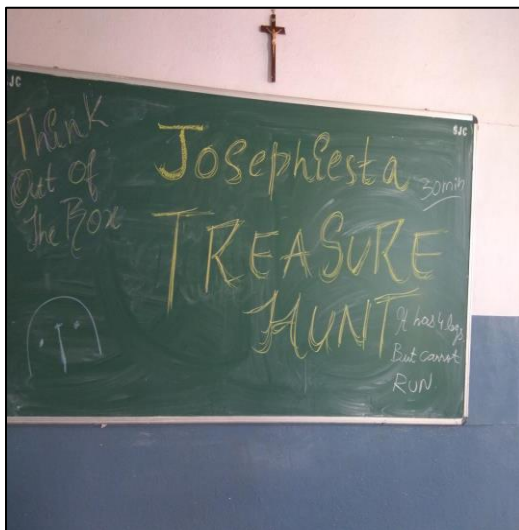 SJC
SJC
Think
Out of
The Box
Josephiesta
30 min
TREASURE
HUNT
It has 4 legs
But cannot
RUN.